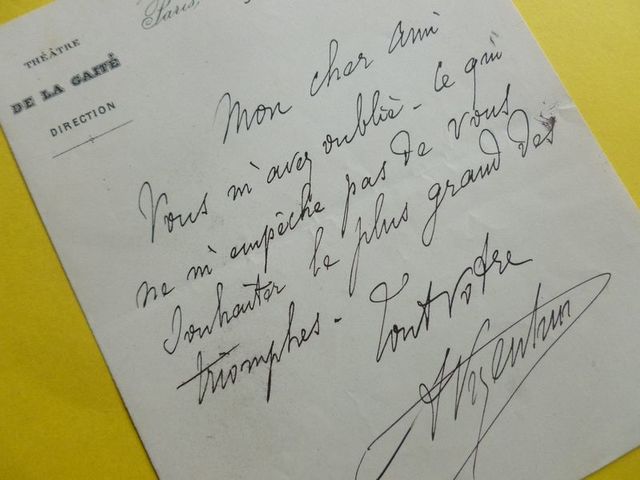 Paris,
THÉÂTRE
DE LA GAITÉ
DIRECTION
Mon cher ami
Vous m'avez oublié - Ce qui
ne m'empêche pas de vous
souhaiter le plus grand des
triomphes -
Tout vôtre